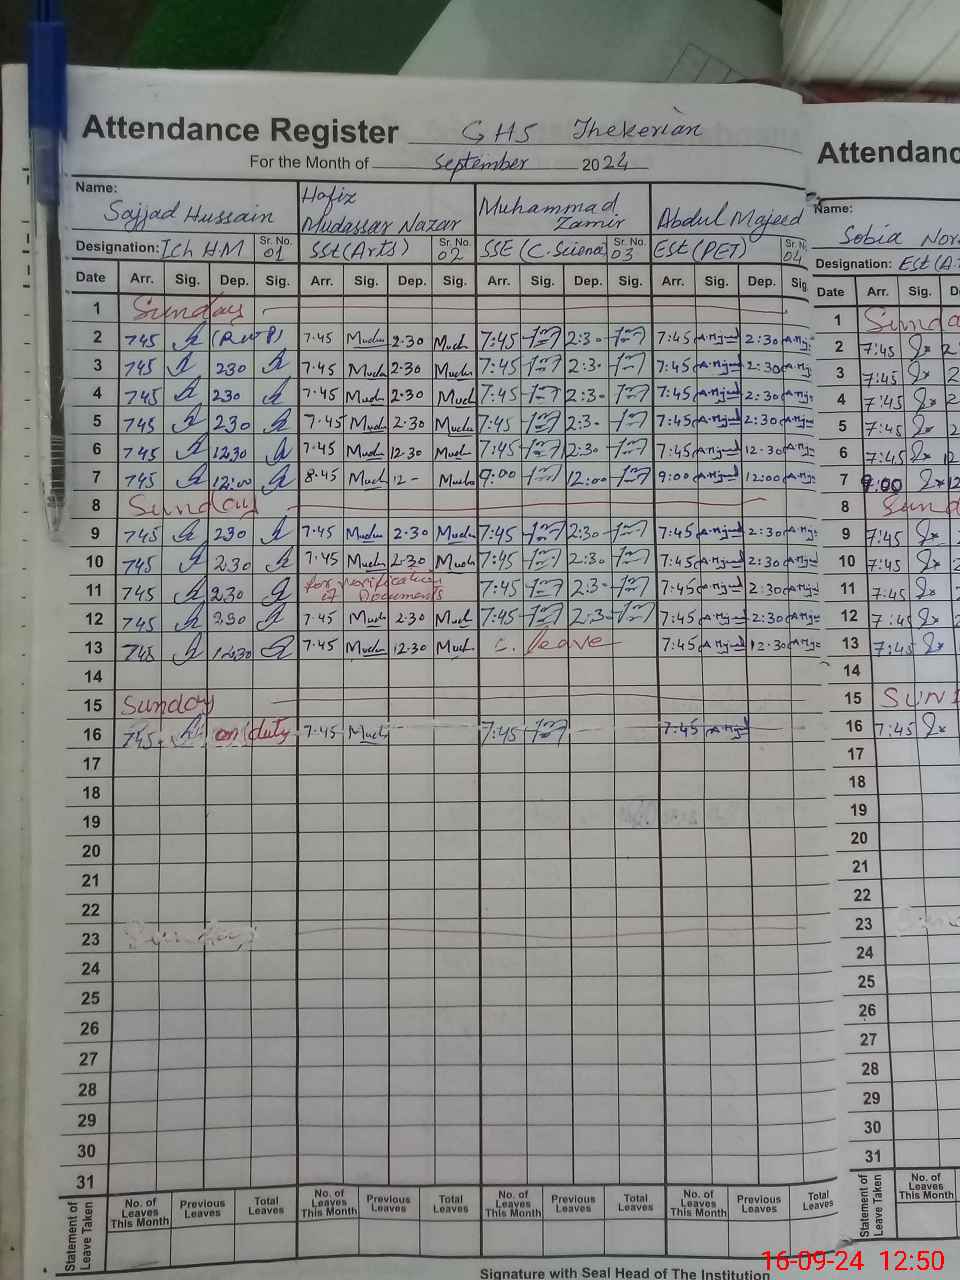 Attendance Register GHS Thekerian
For the Month of September 2024
Name: Sajjad Hussain Hafiz Mudassar Nazar Muhammad Zamir Abdul Majeed
Designation: Ich HM Sr. No. 01 SSt (Arts) Sr. No. 02 SSE (C. Science) Sr. No. 03 ESt (PET) Sr. No. 04
Date Arr. Sig. Dep. Sig. Arr. Sig. Dep. Sig. Arr. Sig. Dep. Sig. Arr. Sig. Dep. Sig.
1 Sunday
2 745 7.45 2.30 7:45 2:30 7:45 2:30
3 745 230 7.45 2.30 7:45 2:30 7:45 2:30
4 745 230 7.45 2.30 7:45 2:30 7:45 2:30
5 745 230 7.45 2.30 7:45 2:30 7:45 2:30
6 745 1230 7.45 12.30 7:45 7:45 12:30
7 745 12:00 8:45 12 9:00 12:00 9:00 12:00
8 Sunday
9 745 230 7.45 2.30 7:45 2:30 7:45 2:30
10 745 230 7.45 2.30 7:45 2:30 7:45 2:30
11 745 230 for verification of Documents 7:45 2:30 7:45 2:30
12 745 230 7.45 2.30 7:45 2:30 7:45 2:30
13 745 1230 7.45 12.30 C. leave 7:45 12:30
14
15 Sunday
16 745 on duty 7.45 7:45 7:45
17
18
19
20
21
22
23 Sunday
24
25
26
27
28
29
30
31
Statement of Leave Taken
No. of Leaves This Month Previous Leaves Total Leaves No. of Leaves This Month Previous Leaves Total Leaves No. of Leaves This Month Previous Leaves Total Leaves No. of Leaves This Month Previous Leaves Total Leaves
Signature with Seal Head of The Institution
Attendanc
Name:
Sobia
Designation: ESt
Date Arr. Sig.
1
2 7:45
3 7:45
4 7:45
5 7:45
6 7:45
7 9:00
8
9 7:45
10 7:45
11 7:45
12
13 7:45
14
15
16 7:45
17
18
19
20
21
22
23
24
25
26
27
28
29
30
31
Statement of Leave Taken
No. of Leaves This Month
16-09-24 12:50